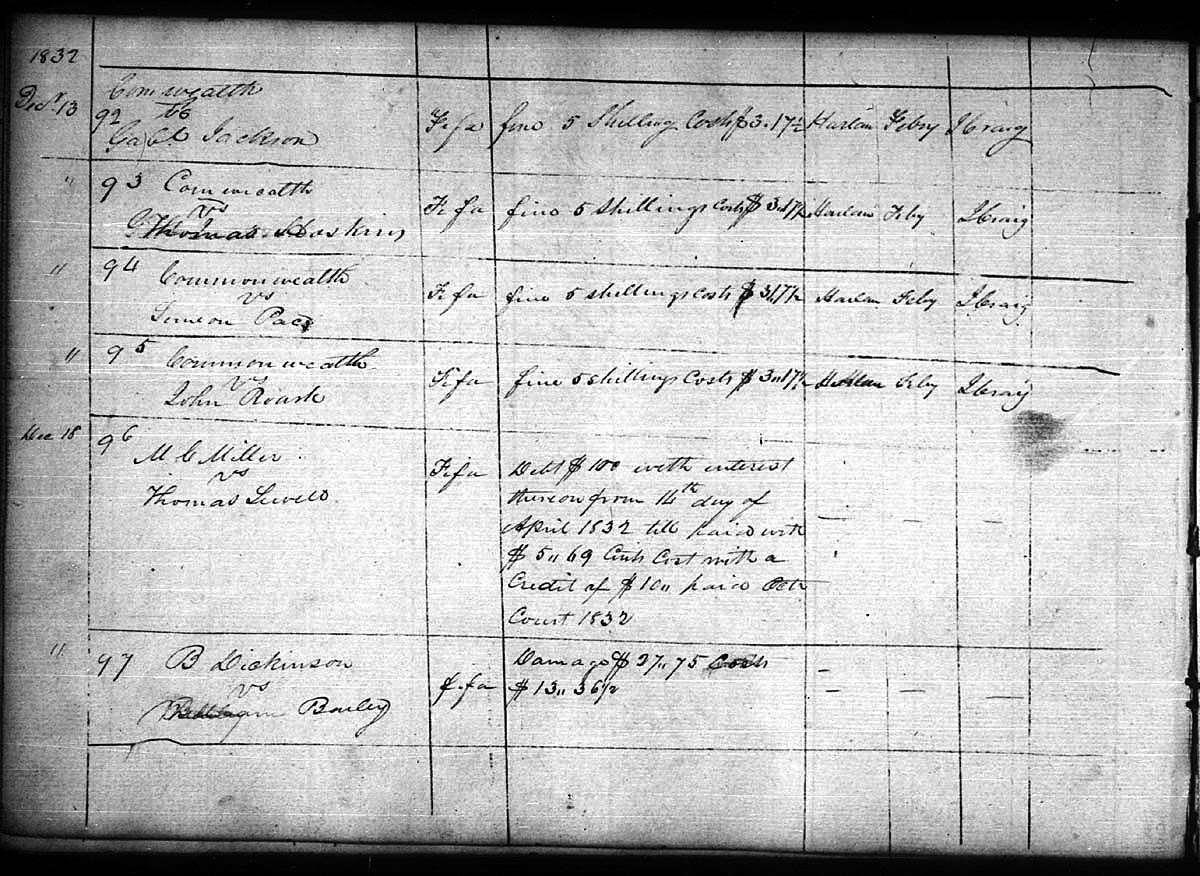 1832
Decr 13
Com wealth
92 vs
Gabl Jackson
Fi fa fine 5 Shilling Costs $3.17½ Harlan Febry J Craig
" 93 Comwealth
vs
Hoskins
Fi fa fine 5 Shillings Costs $3.17½ Harlan Feby J Craig
" 94 Commonwealth
vs
Simeon Pace
Fi fa fine 5 shillings Costs $3.17½ Harlan Feby J Craig
" 95 Commonwealth
vs
John Roark
Fi fa fine 5 shillings Costs $3,,17½ Harlan Feby J Craig
Dec 18 96
M C Miller
vs
Thomas
Fi fa Debt $100 with interest
thereon from 14th day of
April 1832 till paid with
$5,,69 Cents Cost with a
Credit of $10,, paid Octr
Court 1832
" 97 B Dickinson
vs
Bailey
fi fa Damage $37,,75 Costs
$13,,36½